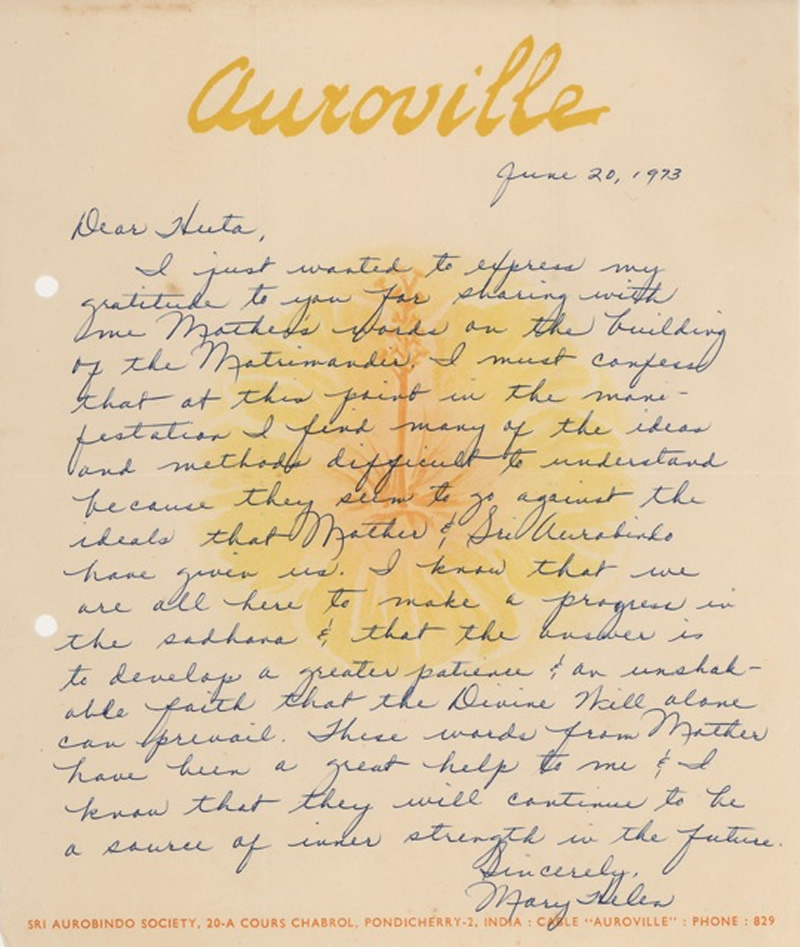 Auroville
June 20, 1973
Dear Huta,
I just wanted to express my
gratitude to you for sharing with
me Mother's words on the building
of the Matrimandir. I must confess
that at this point in the mani-
festation I find many of the ideas
and methods difficult to understand
because they seem to go against the
ideals that Mother & Sri Aurobindo
have given us. I know that we
are all here to make a progress in
the sadhana & that the answer is
to develop a greater patience & an unshak-
able faith that the Divine Will alone
can prevail. These words from Mother
have been a great help to me & I
know that they will continue to be
a source of inner strength in the future.
Sincerely,
Mary Helen
SRI AUROBINDO SOCIETY, 20-A COURS CHABROL, PONDICHERRY-2, INDIA : CABLE "AUROVILLE" : PHONE : 829